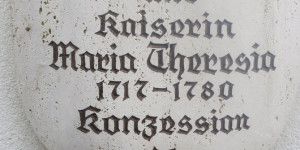 Kaiserin
Maria Theresia
1717-1780
Konzession